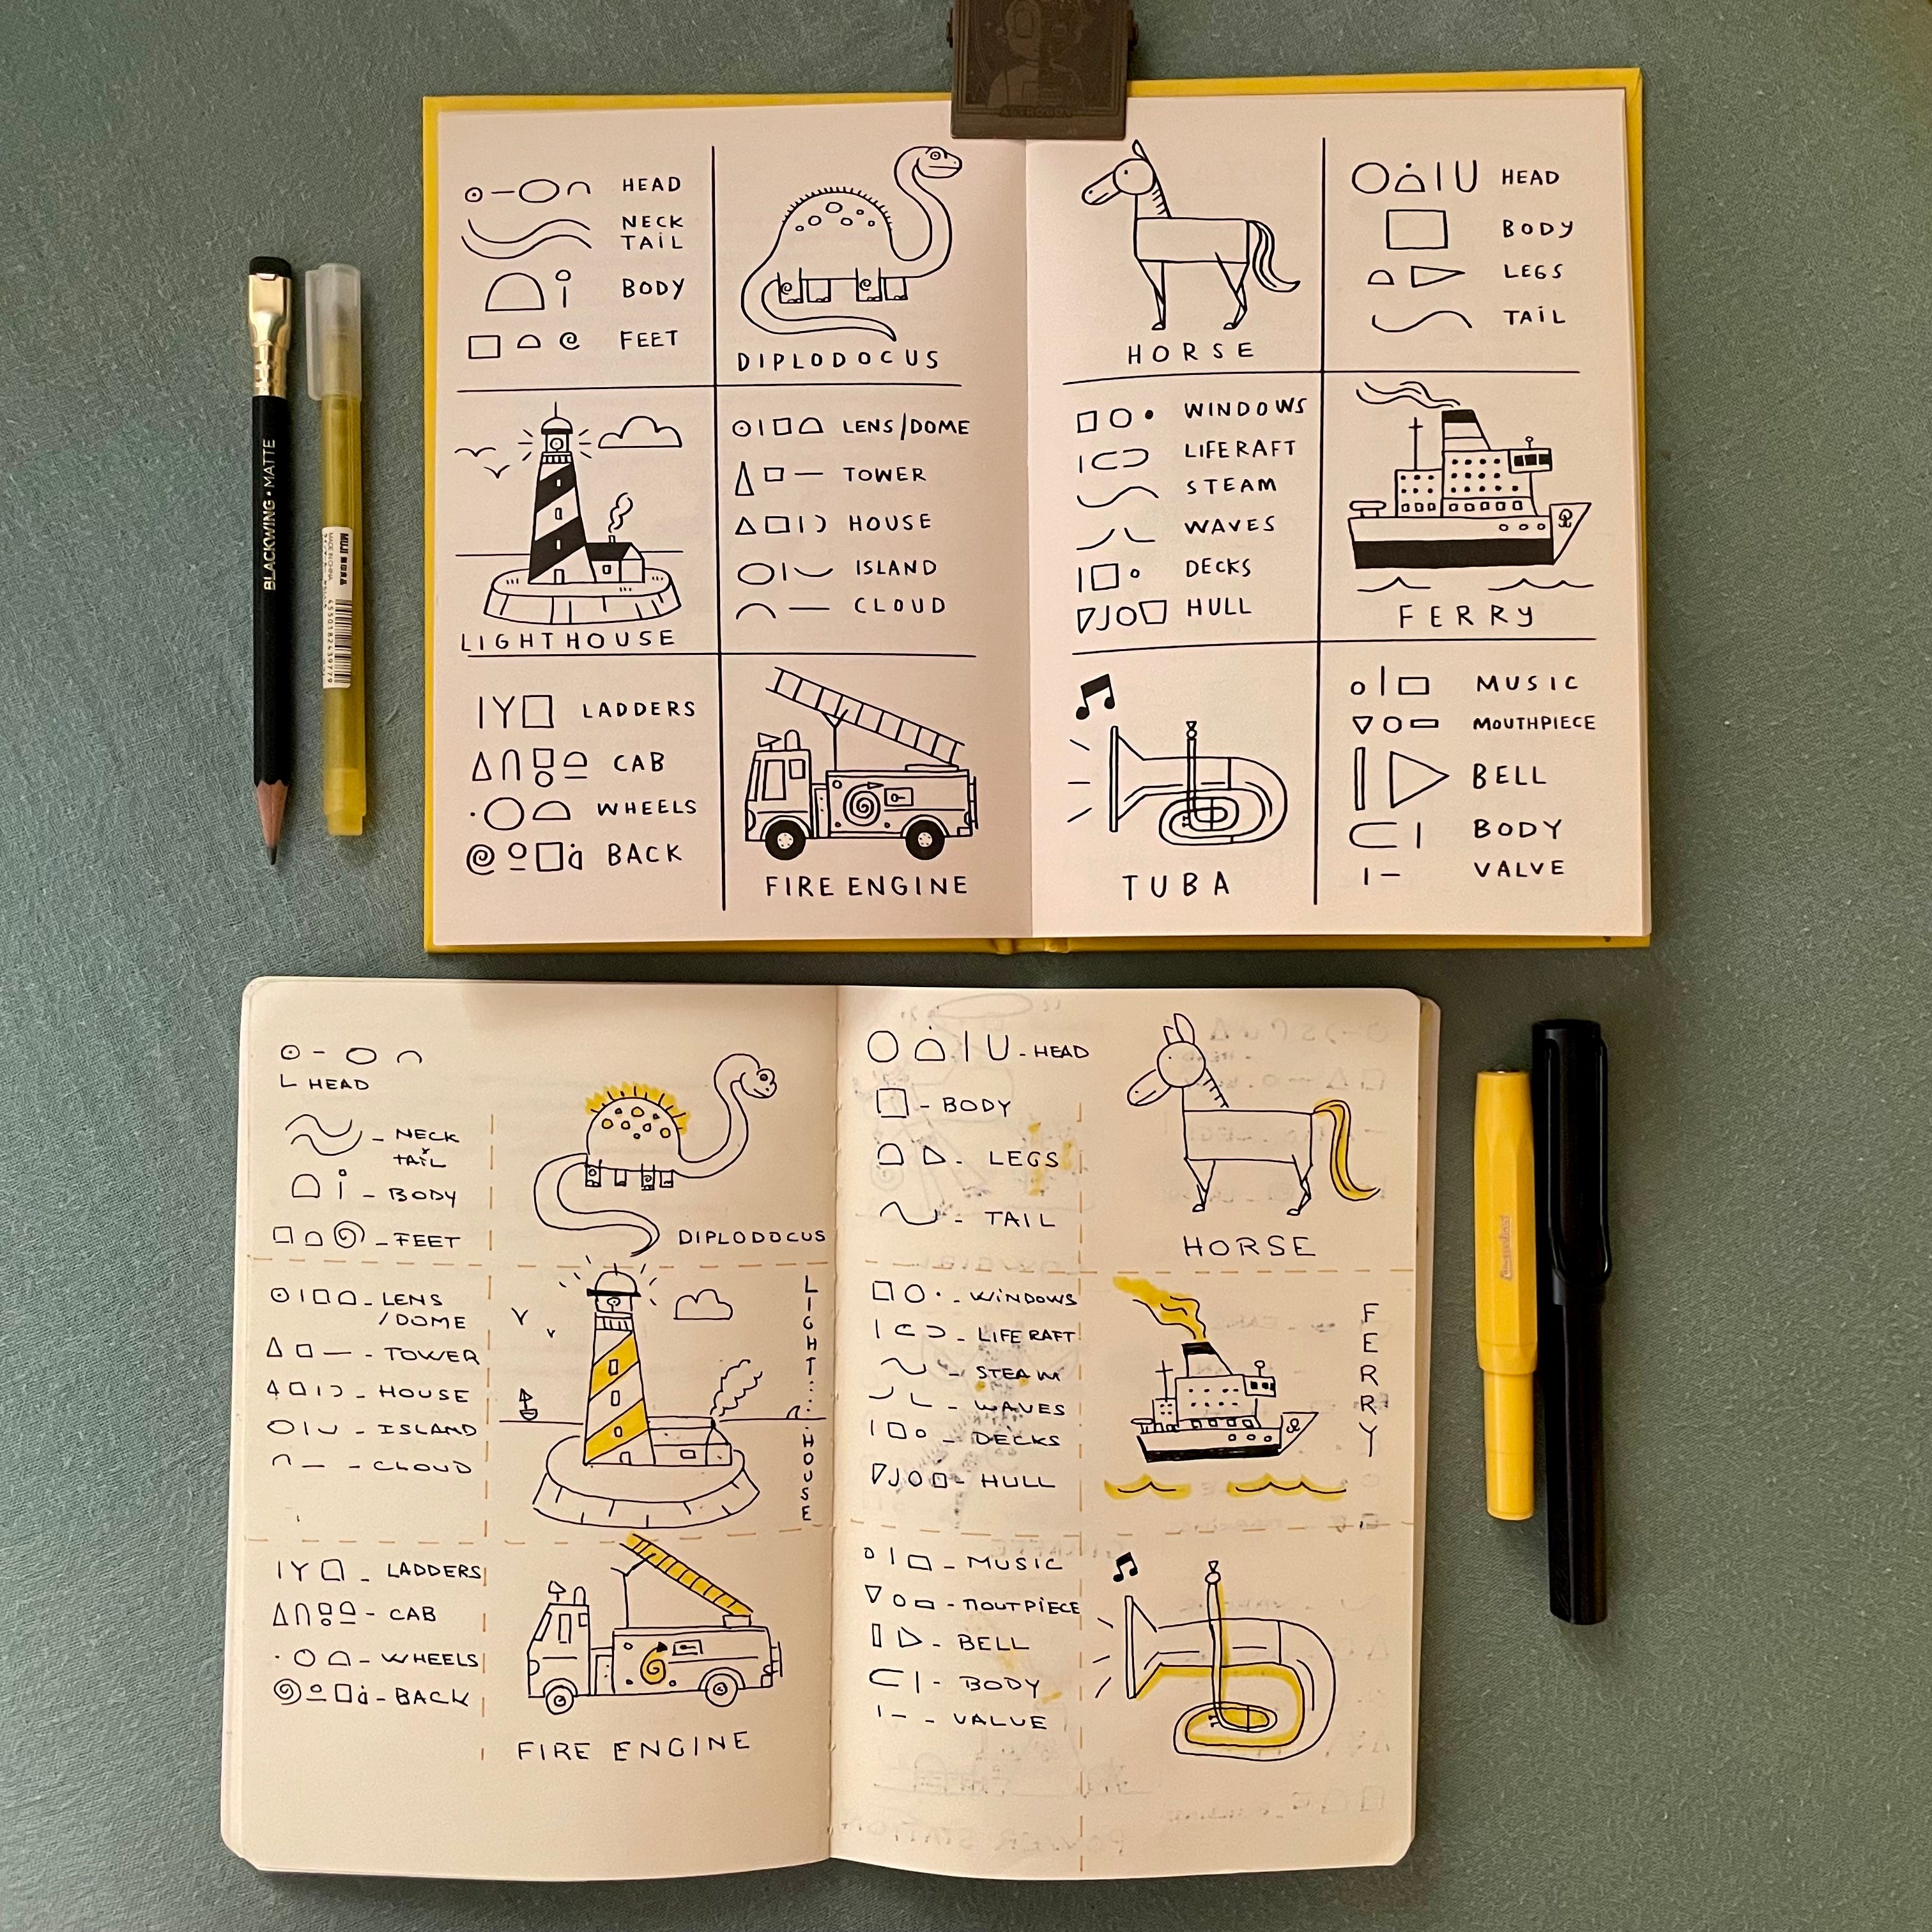 ASTROBOY
HEAD
NECK
TAIL
BODY
FEET
DIPLODOCUS
HORSE
HEAD
BODY
LEGS
TAIL
LIGHTHOUSE
LENS/DOME
TOWER
HOUSE
ISLAND
CLOUD
WINDOWS
LIFERAFT
STEAM
WAVES
DECKS
HULL
FERRY
LADDERS
CAB
WHEELS
BACK
FIRE ENGINE
TUBA
MUSIC
MOUTHPIECE
BELL
BODY
VALVE
BLACKWING • MATTE
MUJI 無印良品
MADE IN CHINA
4550182439779
HEAD
NECK
TAIL
BODY
FEET
DIPLODOCUS
HEAD
BODY
LEGS
TAIL
HORSE
LENS
/DOME
TOWER
HOUSE
ISLAND
CLOUD
LIGHT
HOUSE
WINDOWS
LIFE RAFT
STEAM
WAVES
DECKS
HULL
FERRY
LADDERS
CAB
WHEELS
BACK
FIRE ENGINE
MUSIC
MOUTPIECE
BELL
BODY
VALUE
POWER STATION